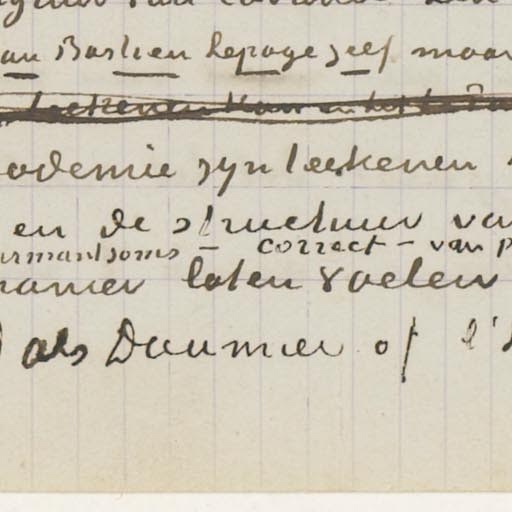 van Bastien Lepage zelf maar
academie zyn teekenen
en de structuur van
charmant soms – correct – van p
manier laten voelen
als Daumier of l'